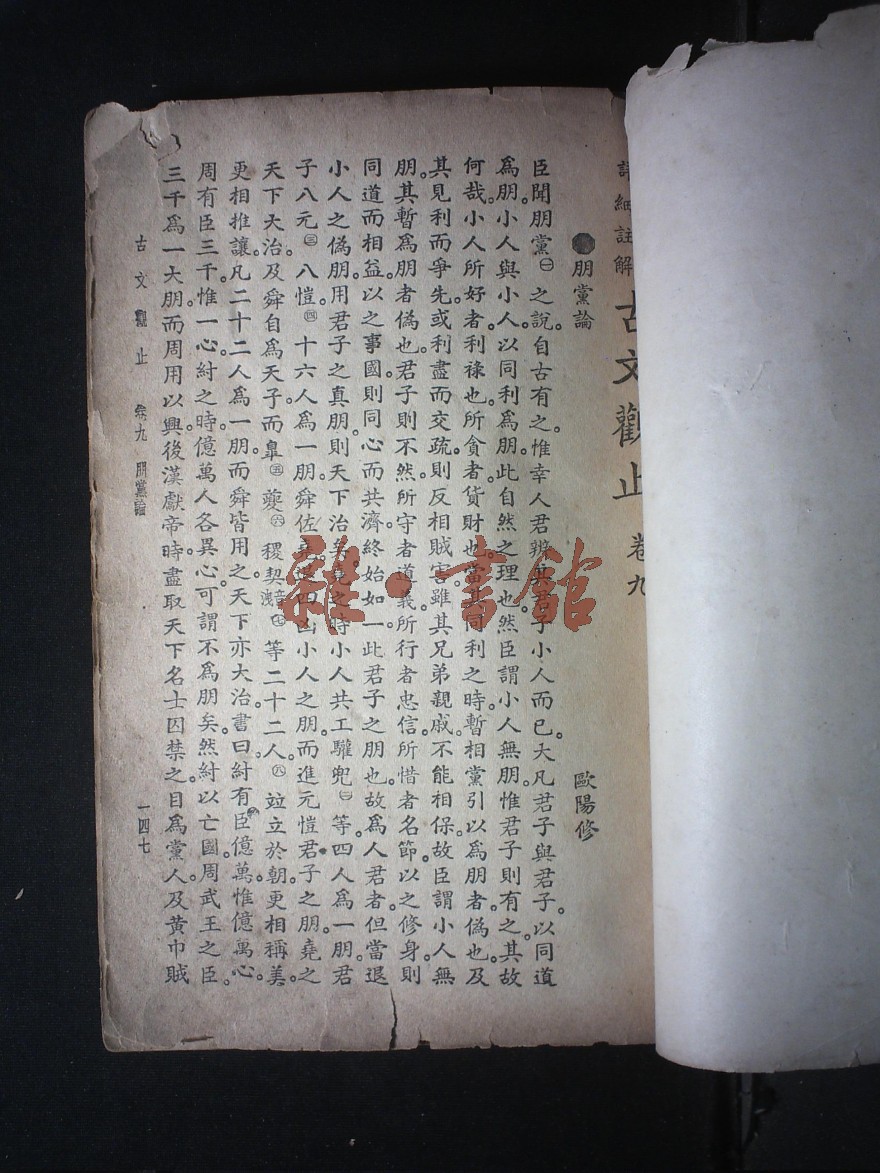 詳細註解古文觀止 卷九
朋黨論 歐陽修
臣聞朋黨㊀之說。自古有之。惟幸人君辨其君子小人而已。大凡君子與君子。以同道
爲朋。小人與小人。以同利爲朋。此自然之理也。然臣謂小人無朋。惟君子則有之。其故
何哉。小人所好者利祿也。所貪者貨財也。當其同利之時。暫相黨引以爲朋者僞也。及
其見利而爭先。或利盡而交疏。則反相賊害。雖其兄弟親戚。不能相保。故臣謂小人無
朋。其暫爲朋者僞也。君子則不然。所守者道義。所行者忠信。所惜者名節。以之修身。則
同道而相益。以之事國。則同心而共濟。終始如一。此君子之朋也。故爲人君者。但當退
小人之僞朋。用君子之真朋。則天下治矣。堯之時。小人共工驩兜㊁等四人爲一朋。君
子八元㊂八愷㊃十六人爲一朋。舜佐堯。退四凶小人之朋。而進元愷君子之朋。堯之
天下大治。及舜自爲天子。而臯㊄夔㊅稷契㊆等二十二人。㊇竝立於朝。更相稱美。
更相推讓。凡二十二人爲一朋。而舜皆用之。天下亦大治。書曰。紂有臣億萬。惟億萬心。
周有臣三千。惟一心。紂之時。億萬人各異心。可謂不爲朋矣。然紂以亡國。周武王之臣。
三千爲一大朋。而周用以興。後漢獻帝時。盡取天下名士囚禁之。目爲黨人。及黃巾賊
古文觀止 卷九 朋黨論 一四七
雜·書館